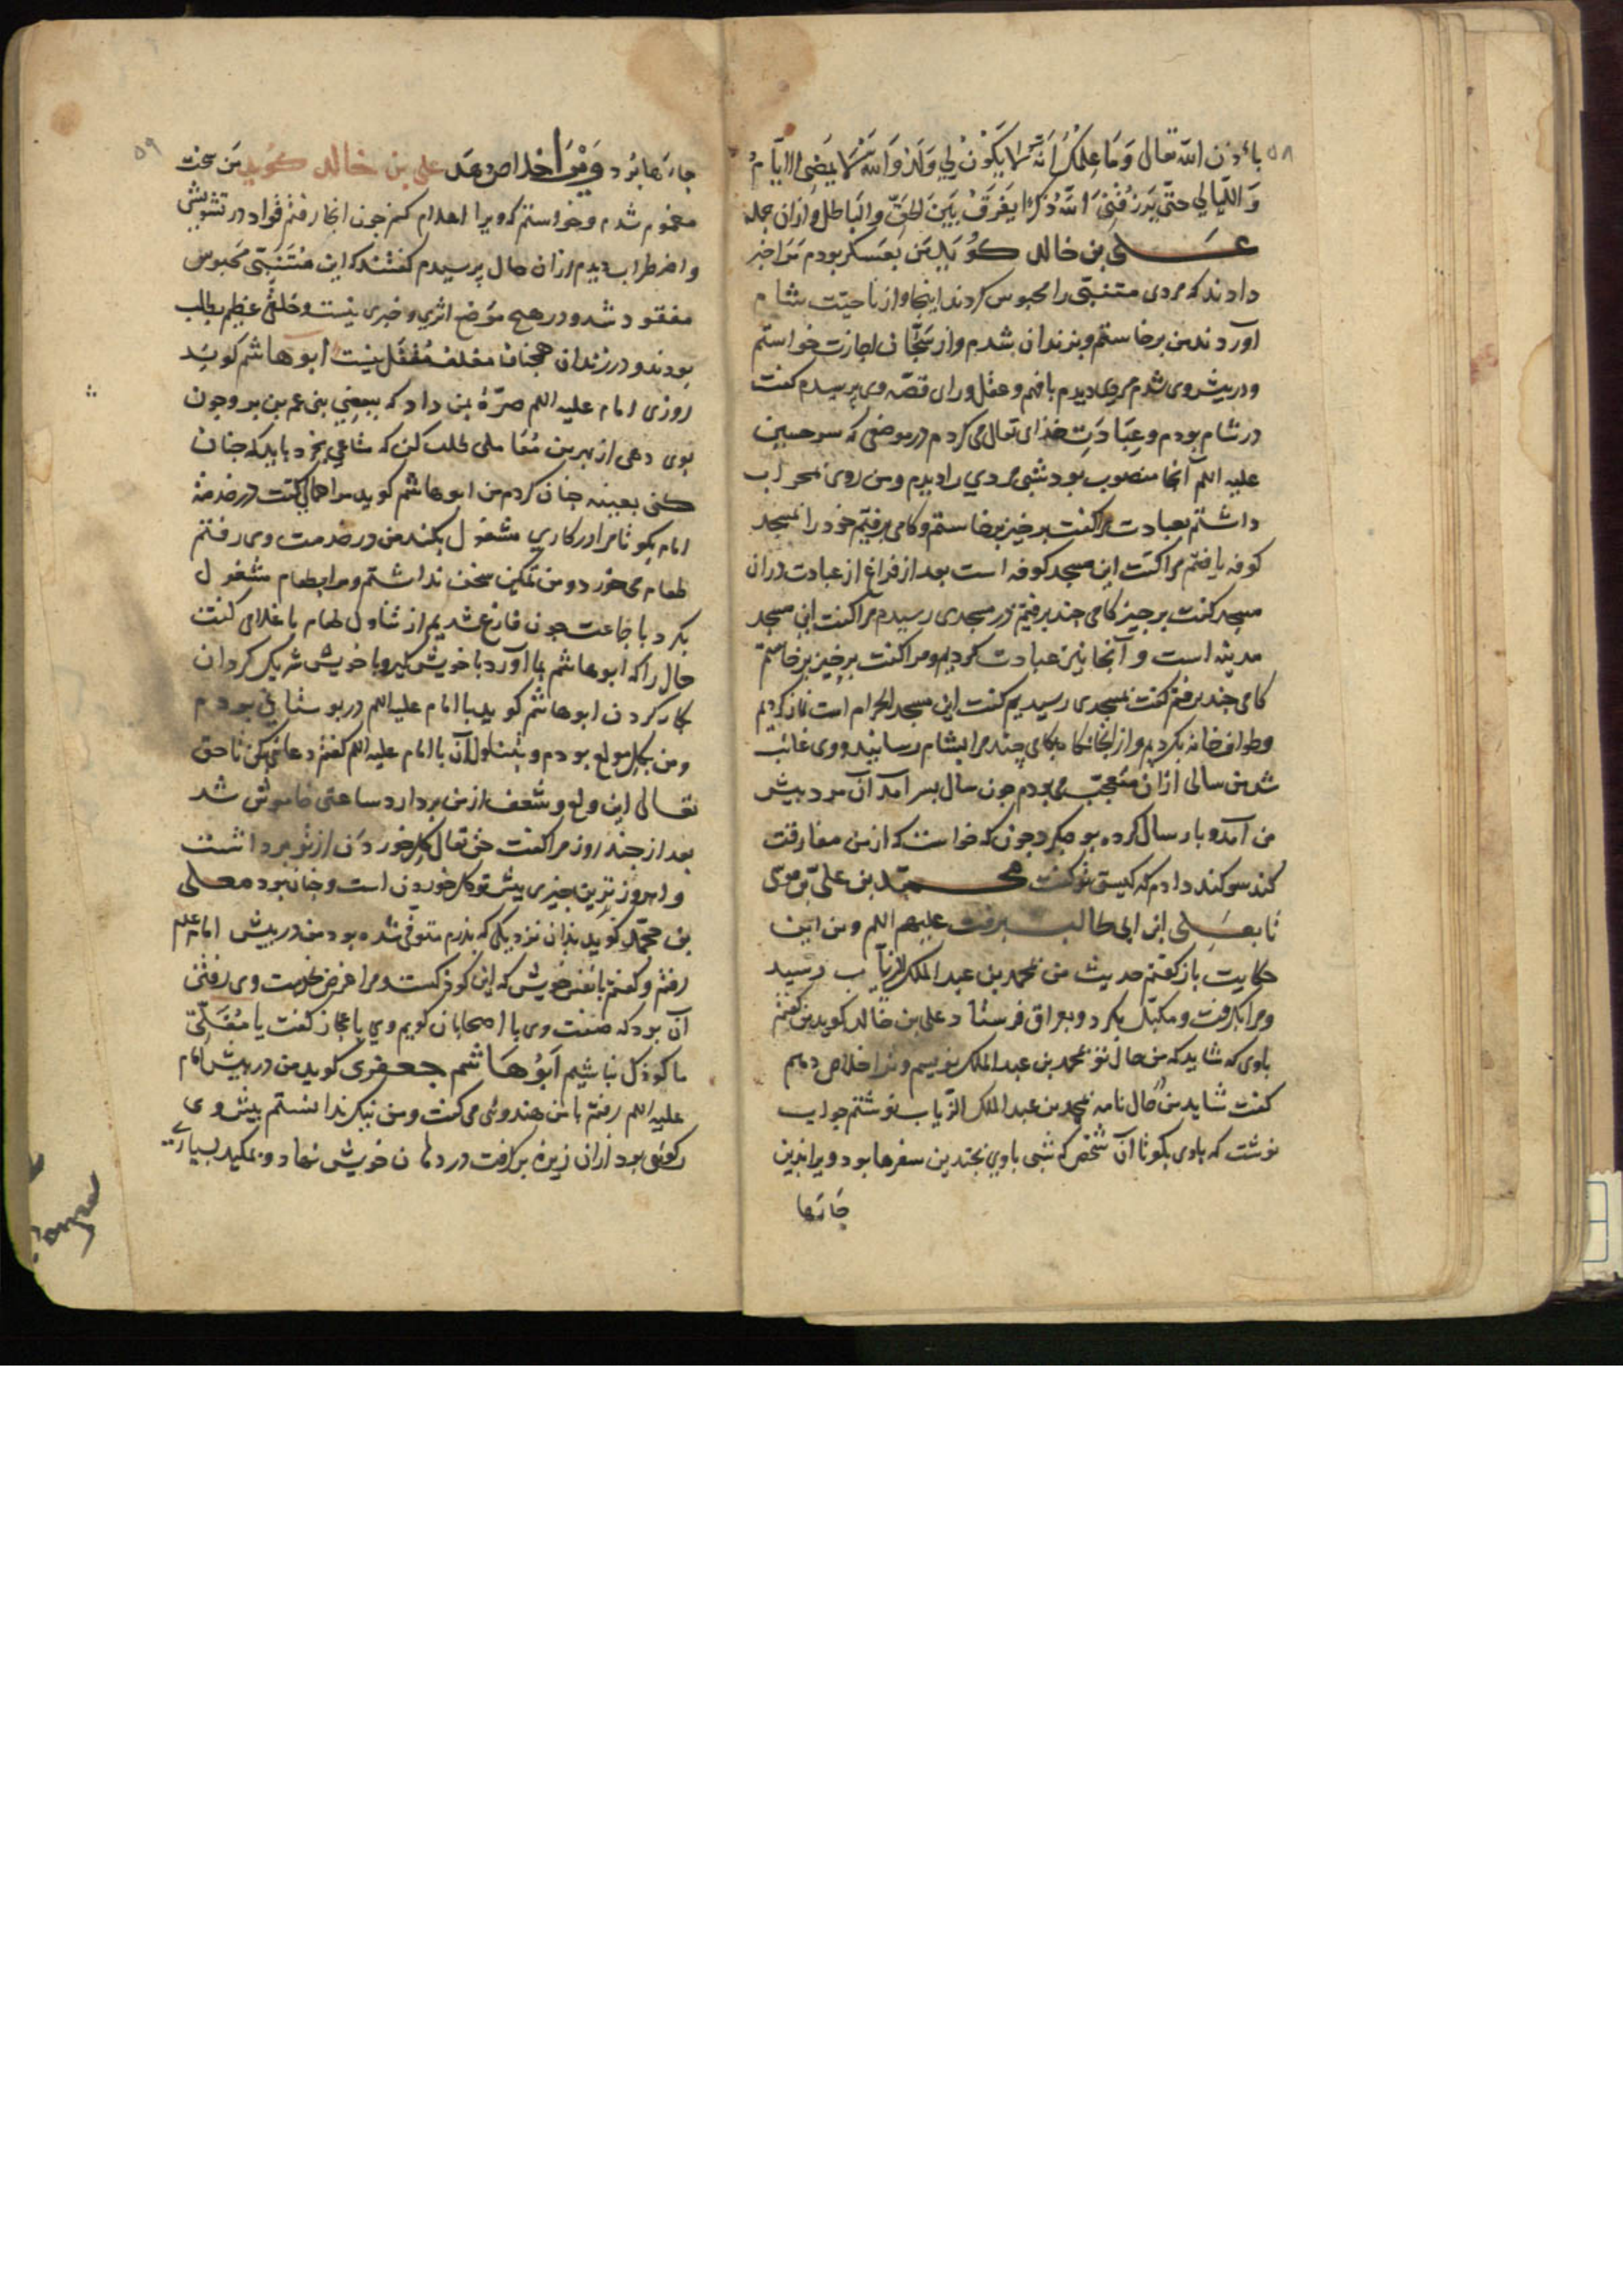 ۵۸
باذن الله تعالی وَمَا عِلْمُکَ اَنّه لا یَکُونُ لِي وَلَدٌ وَاللهِ لا یَمضِی الایّامُ
وَاللّیالي حتّی یَرزُقَنِیَ اللهُ ذَکَرًا یَفرَقُ بَیْنَ الحَقِّ والبَاطل و ازان جمله
عَلی بن خالد کوید من بعسکر بودم مرا خبر
دادند که مردی متنبّی را محبوس کردند اینجا و از ناحیت شام
آوردند من برخاستم و بزندان شدم و از سَجّان اجازت خواستم
و در پیش وی شدم مردی دیدم با فهم و عقل و رای قصّه وی پرسیدم کفت
در شام بودم و عِبادَتِ خدای تعالی می کردم در موضعی که سر حسین
علیه السلم آنجا منصوب بود شبی مردي را دیدم و من روی بمحراب
داشتم بعبادت مرا کفت برخیز برخاستم و کامی برفتیم خود را بمسجد
کوفه یافتم مرا کفت این مسجد کوفه است بعد از فراغ از عبادت در ان
مسجد کفت برخیز کامی چند برفتیم در مسجدی رسیدم مرا کفت این مسجد
مدینه است و آنجا نیز عبادت کردیم و مرا کفت برخیز برخاستم
کامی چند برفتم کفت بمسجدی رسیدیم کفت این مسجد الحرام است نماز کردیم
و طواف خانه بکردیم و از انجا بکامی چند مرا بشام رسانید و وی غائب
شد من سالی ازان متعجّب می بودم چون سال بسر آمد آن مرد پیش
من آمد و پار سال کرده بود بکرد چون که خواست که از من مفارقت
کند سوکند دادم که کیستی تو کفت محمّد بن علیّ بن موسی
تا بعَلی ابن ابی طالب برفت علیهم السلم و من این
حکایت باز کفتم حدیث من بمحمد بن عبد الملک الزیّاب رسید
و مرا بکرفت و مکبّل بکرد و بعراق فرستاد علی بن خالد کوید من کفتم
باوی که شاید که من حال تو بمحمد بن عبد الملک بنویسم و ترا خلاص دهیم
کفت شاید من حال نامه بمحمد بن عبد الملک الزیاب نوشتم جواب
نوشت که باوی بکو تا آن شخص که شبی باوي بچندین سفرها بود ویرا بدین
جایها
۵۹
جایها برد وَیْرَا خلاص دهد علي بن خالد کوید من سخت
مغموم شدم و خواستم که ویرا اعلام کنم چون انجا رفتم قواد در تشویش
و اضطراب دیدم ازان حال پرسیدم کفتند که این متنبّی محبوس
مفقود شد و در هیچ موضع اثری و خبری نیست و خلقی عظیم بطلب
بودند و در زندان همچنان مغلق مُقفّل نیست ابو هاشم کوید
روزی امام علیه السلم صرّهٔ بمن داد که ببعضي بنی عم من بر و چون
بوی دهی از بهر من مُعاملی طلب کن که متاعي بخرد باید که چنان
کنی بعینه چنان کردم من ابو هاشم کوید مرا حمالی کفت در خدمة
امام بکو تا مرا در کاري مشغول بکند من در خدمت وی رفتم
طعام می خورد و من تمکین سخن نداشتم و مرا بطعام مشغول
بکرد با جماعت چون فارغ شدیم از تناول طعام با غلامی کفت
حال را که ابو هاشم بما آورد با خویش کیر و با خویش شریک کردان
بکار کردن ابو هاشم کوید با امام علیه السلم در بوستاني بودم
و من بکل مولع بودم و بتناول آن با امام علیه السلم کفتم دعائي بکن تا حق
تعالی این ولع و شعف از من بردارد ساعتی خاموش شد
بعد از چند روز مرا کفت حق تعالی کل خوردن از تو برداشت
و امروز ترین چیزی پیش تو کل خوردن است و چنان بود معلی
بن محمّد کوید بدان نزدیکی که پدرم متوفّی شده بود من در پیش امام علیه السلم
رفتم و کفتم با نفس خویش که این کودکست و مرا غرض بخدمت وی رفتن
آن بود که صفت وی با اصحابان کویم وي باعجاز کفت یا مُعَلّی
ما کودک نباشیم اَبُو هَاشم جعفری کوید من در پیش امام
علیه السلم رفتم با من هندوئی می کفت و من نیکو ندانستم پیش وی
رکوئی بود ازان زیزهٔ برکرفت در دهان خویش نهاد و بمکید بسیاری